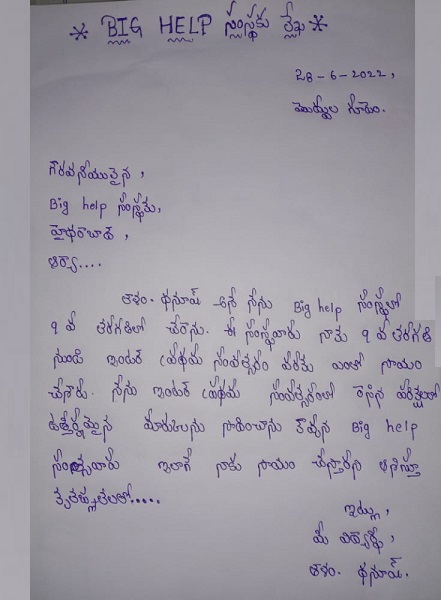 * BIG HELP సంస్థకు లేఖ *
28-6-2022,
మొద్దుల గూడెం.
గౌరవనీయులైన,
Big help సంస్థకు,
హైదరాబాద్,
ఆర్యా....
తాళం. ధనూష్ అనే నేను Big help సంస్థలో
9 వ తరగతిలో చేరాను. ఈ సంస్థవారు నాకు 9 వ తరగతి
నుండి ఇంటర్ ప్రథమ సంవత్సరం వరకు ఎంతో సాయం
చేసారు. నేను ఇంటర్ ప్రథమ సంవత్సరంలో రాసిన పరీక్షలలో
ఉత్తీర్ణమైన మార్కులను సాధించాను కావున Big help
సంస్థవారు ఇలాగే నాకు సాయం చేస్తారని ఆశిస్తూ
కృతజ్ఞతలతో.....
ఇట్లు,
మీ విద్యార్థి,
తాళం. ధనూష్.